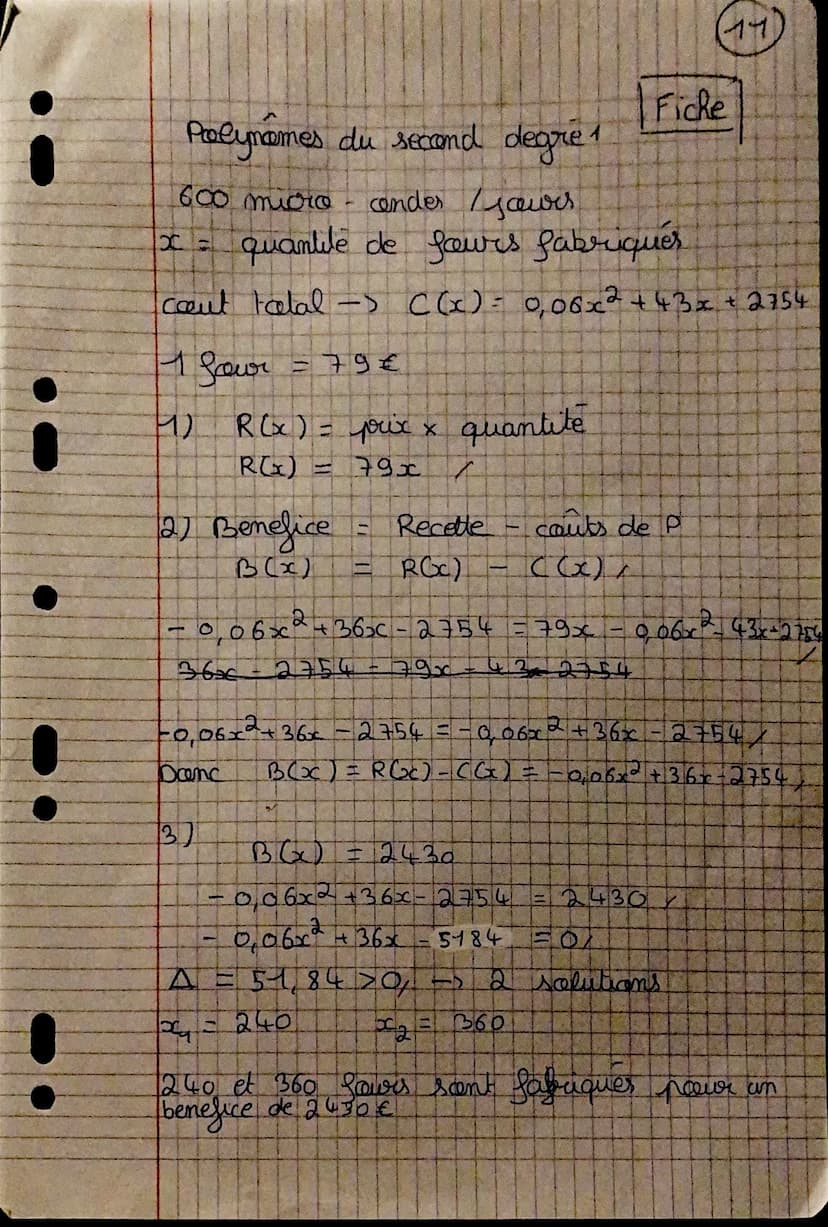 11
Fiche
Polynômes du second degré 1
600 micro-ondes / jours
x = quantité de fours fabriqués
cout total -> C(x) = 0,06x² + 43x + 2754
1 four = 79 €
1) R(x) = prix x quantité
R(x) = 79x /
2) Benefice = Recette - coûts de P
B(x) = R(x) - C(x) /
- 0,06x² + 36x - 2754 = 79x - 0,06x² - 43x - 2754 /
36x - 2754 = 79x - 43x - 2754
-0,06x² + 36x - 2754 = -0,06x² + 36x - 2754 /
Donc B(x) = R(x) - C(x) = -0,06x² + 36x - 2754 /
3)
B(x) = 2430
- 0,06x² + 36x - 2754 = 2430 /
- 0,06x² + 36x - 5184 = 0 /
Δ = 51,84 > 0, -> 2 solutions
x₁ = 240 x₂ = 360
240 et 360 fours sont fabriqués pour un
benefice de 2430 €